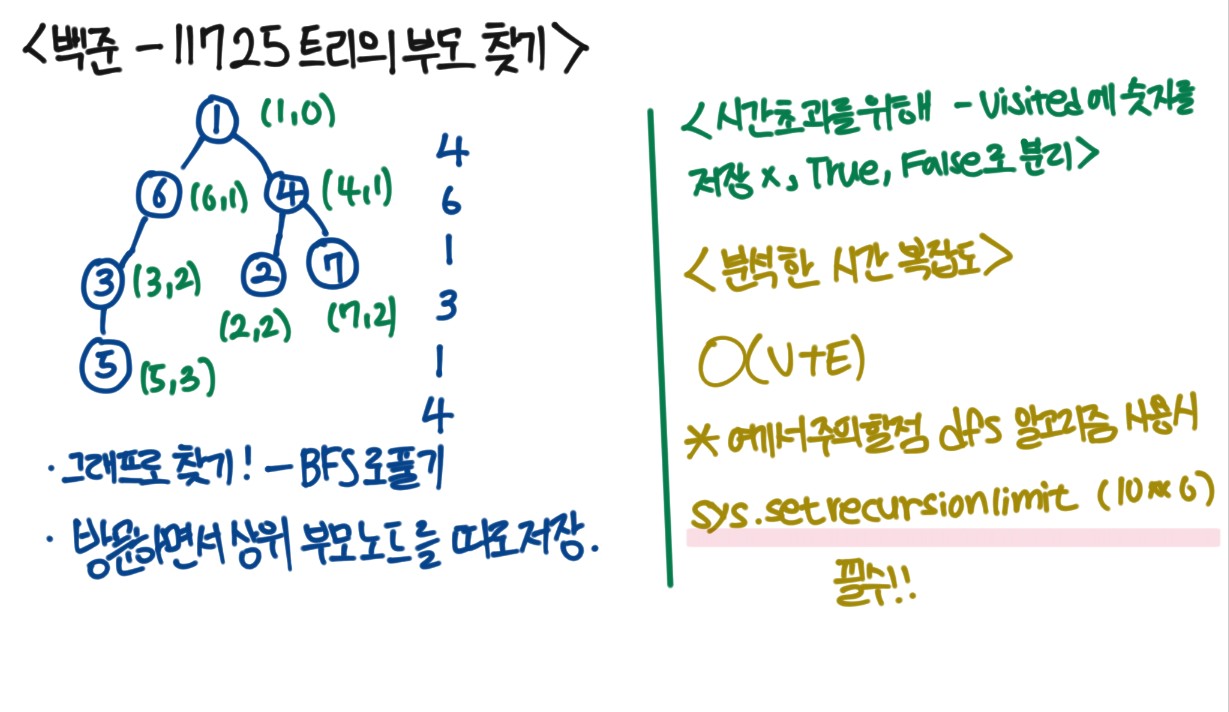 <백준 - 11725 트리의 부모 찾기>
1 (1,0)
6 (6,1) 4 (4,1)
3 (3,2) 2 7
(2,2) (7,2)
5 (5,3)
4
6
1
3
1
4
· 그래프로 찾기! - BFS로풀기
· 방문하면서 상위 부모노드를 따로저장.
<시간초과를위해 - Visited에 숫자를
저장 x, True, False로 분리>
<분석한 시간 복잡도>
O(V+E)
* 여기서주의할점 dfs 알고리즘 사용시
sys.setrecursionlimit (10**6)
필수!!